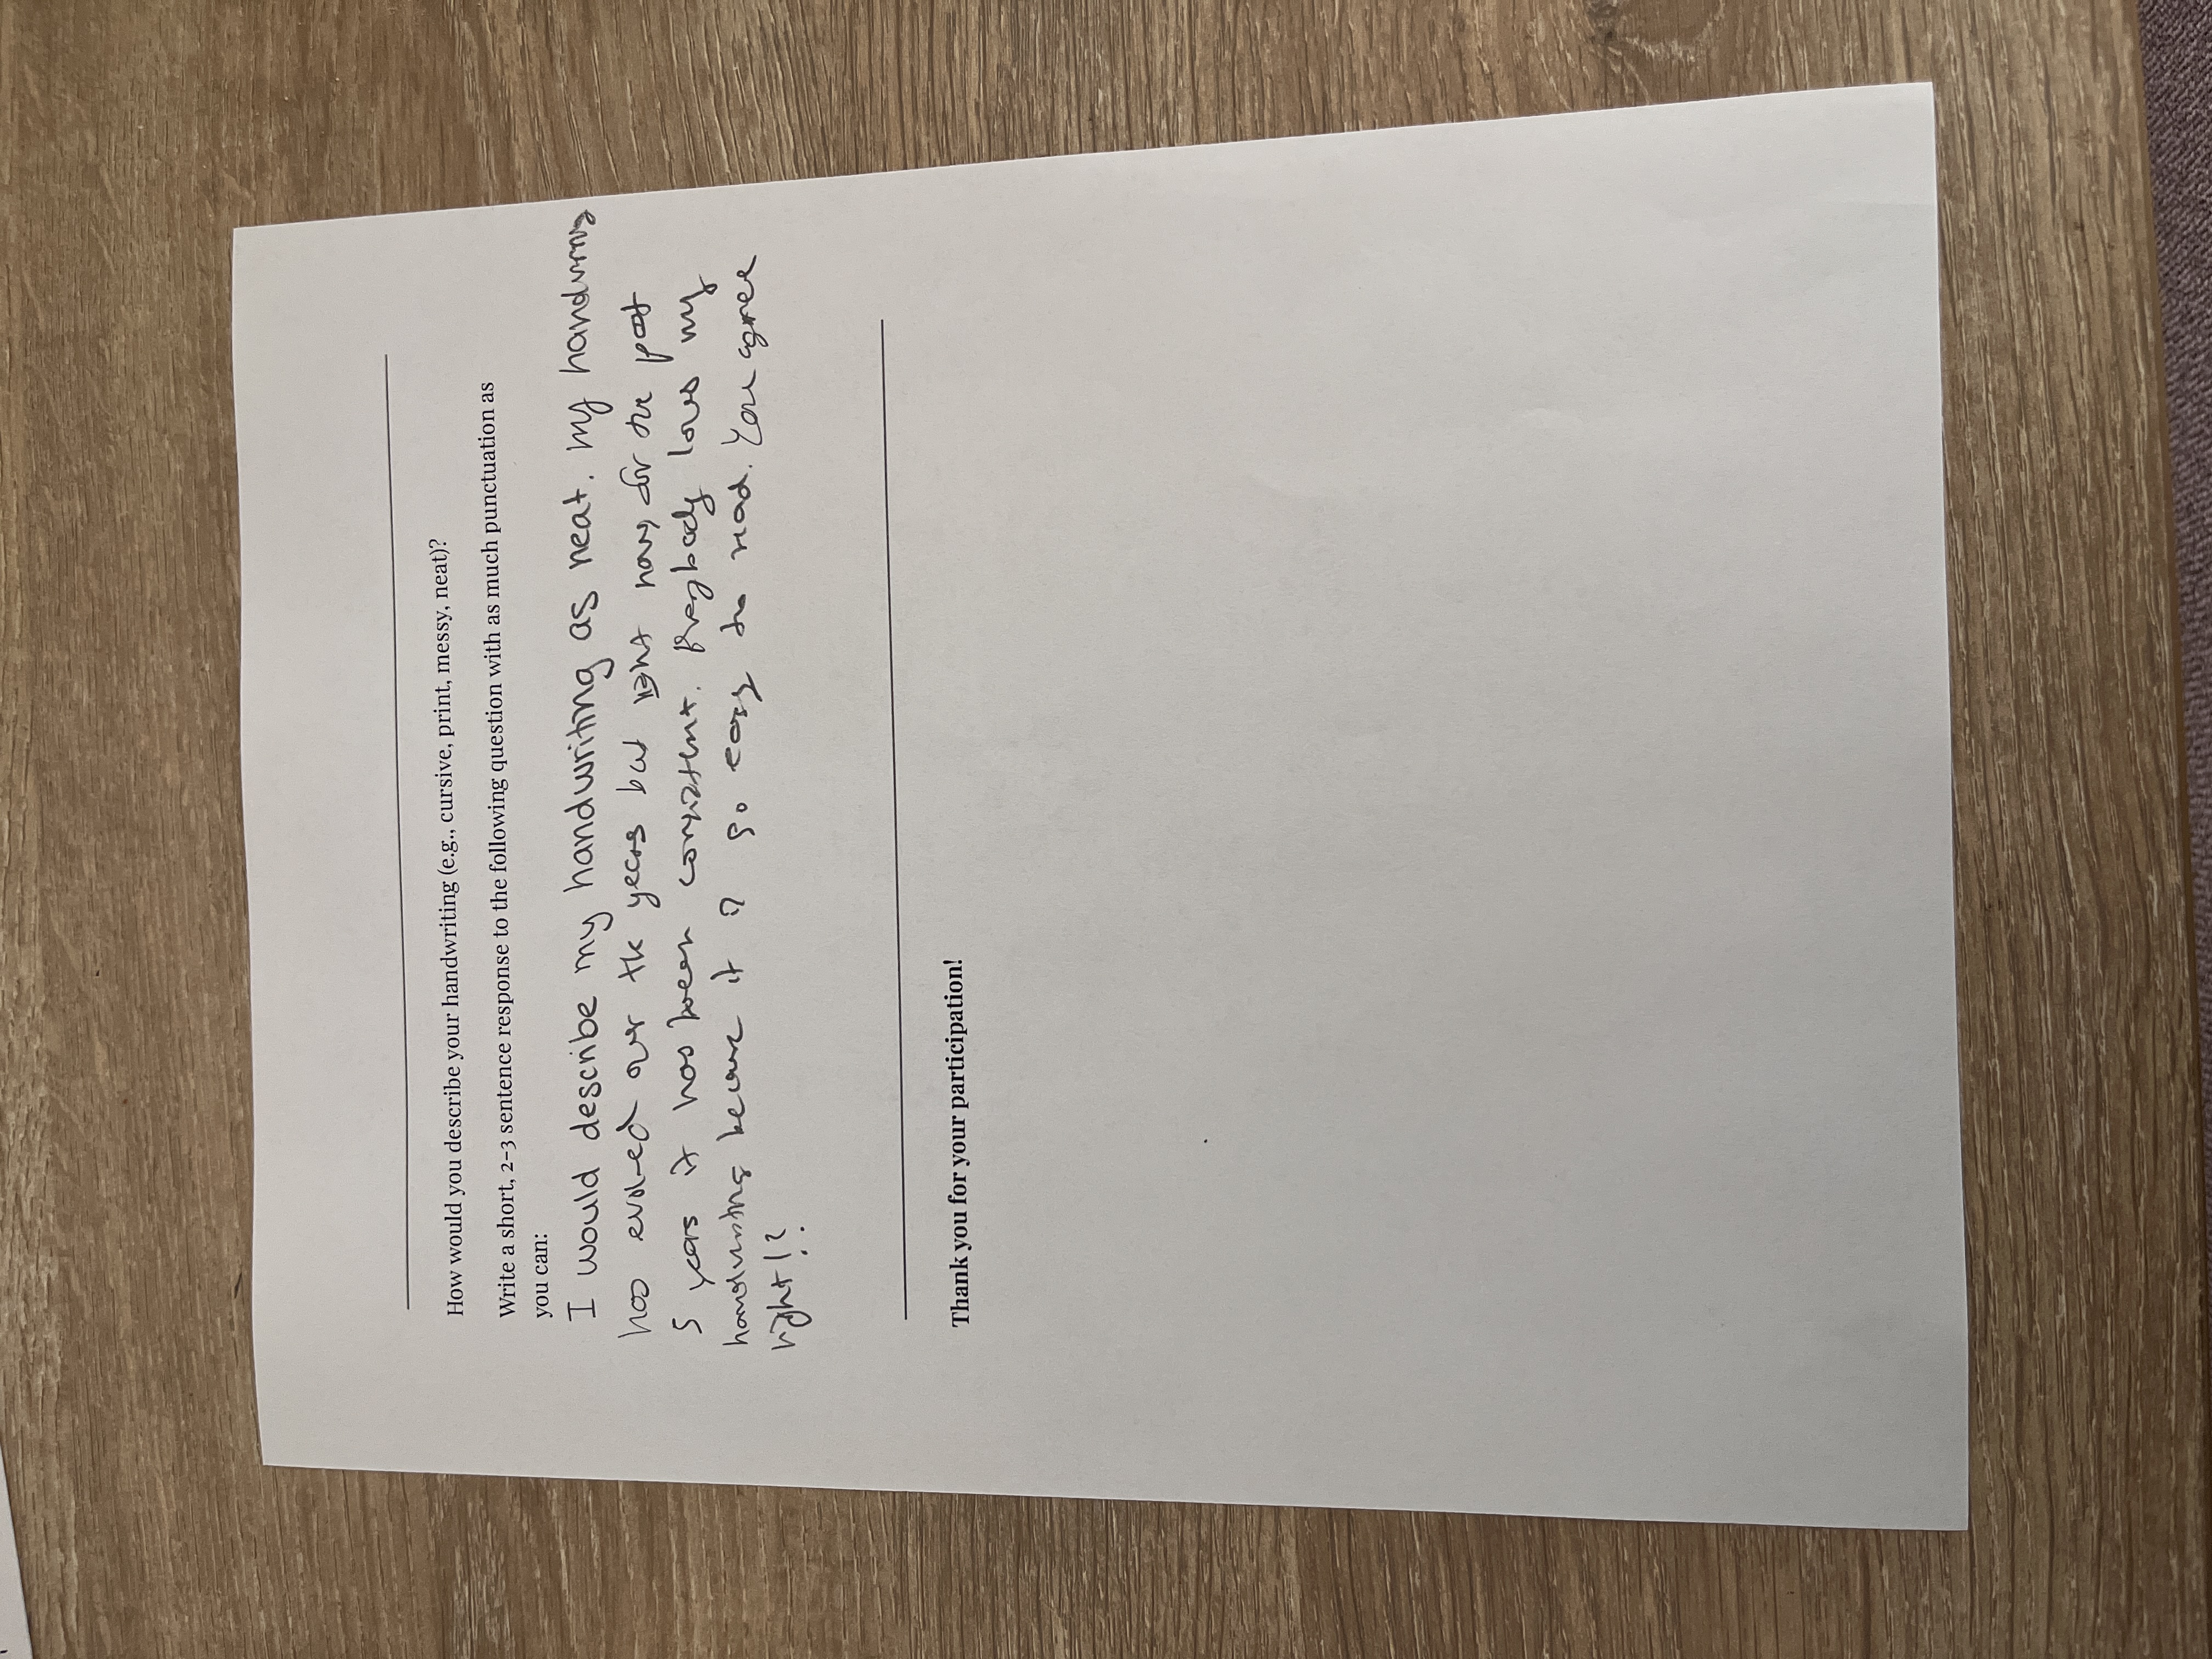 How would you describe your handwriting (e.g., cursive, print, messy, neat)?
Write a short, 2-3 sentence response to the following question with as much punctuation as
you can:
I would describe my handwriting as neat. My handwriting
has evolved over the years but right now, for the past
5 years it has been consistent. Everybody loves my
handwriting because it is so easy to read. You agree
right!?
Thank you for your participation!